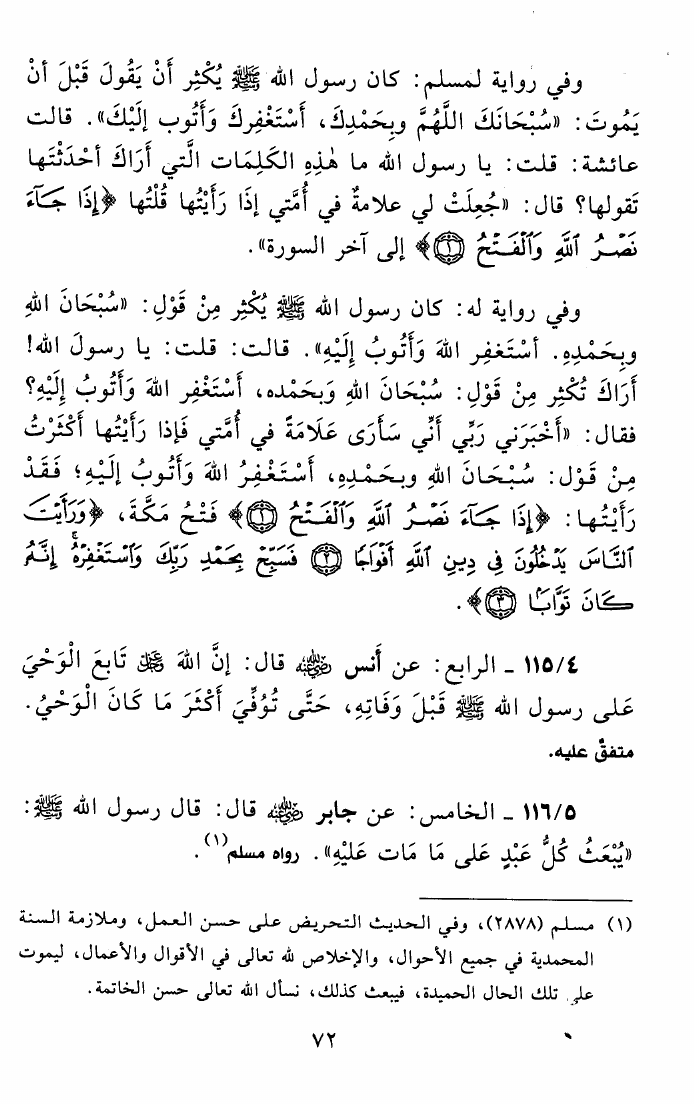 وفي رواية لمسلم: كان رسول الله ﷺ يُكْثِر أَنْ يَقُولَ قَبْلَ أَنْ
يَمُوتَ: «سُبْحَانَكَ اللَّهُمَّ وبِحَمْدِكَ، أَسْتَغْفِركَ وَأَتُوب إلَيْكَ». قالت
عائشة: قلت: يا رسول الله ما هٰذِهِ الكَلِمَات الَّتي أَرَاكَ أحْدَثْتَها
تَقولها؟ قال: «جُعِلَتْ لي علامةٌ في أُمَّتي إذَا رَأَيْتُها قُلْتُها ﴿إِذَا جَآءَ
نَصْرُ ٱللَّهِ وَٱلْفَتْحُ ۝١﴾ إلى آخر السورة».
وفي رواية له: كان رسول الله ﷺ يُكْثِر مِنْ قَوْلِ: «سُبْحَانَ اللهِ
وبِحَمْدِهِ. أسْتَغفِر اللهَ وَأَتُوبُ إلَيْهِ». قالت: قلت: يا رسولَ الله!
أَرَاكَ تُكْثِر مِنْ قَوْل: سُبْحَانَ اللهِ وَبحَمْده، أَسْتَغْفِر اللهَ وَأَتُوبُ إلَيْهِ؟
فقال: «أَخْبَرَني رَبِّي أَنِّي سَأَرَى عَلَامَةً في أُمَّتي فَإذا رَأَيْتُها أكْثَرْتُ
مِنْ قَوْل: سُبْحَانَ اللهِ وبحَمْدِهِ، أَسْتَغْفِرُ اللهَ وَأَتُوبُ إلَيْهِ؛ فَقَدْ
رَأَيْتُها: ﴿إِذَا جَآءَ نَصْرُ ٱللَّهِ وَٱلْفَتْحُ ۝١﴾ فَتْحُ مَكَّةَ، ﴿وَرَأَيْتَ
ٱلنَّاسَ يَدْخُلُونَ فِى دِينِ ٱللَّهِ أَفْوَاجًا ۝٢ فَسَبِّحْ بِحَمْدِ رَبِّكَ وَٱسْتَغْفِرْهُ إِنَّهُ
كَانَ تَوَّابًا ۝٣﴾.
١١٥/٤ ـ الرابع: عن أَنس رضي الله عنه قال: إنَّ اللهَ عز وجل تَابعَ الْوَحْيَ
عَلى رسول الله ﷺ قَبْلَ وَفَاتِهِ، حَتَّى تُوُفِّيَ أَكْثَرَ مَا كَانَ الْوَحْيُ.
متفقٌ عليه.
١١٦/٥ ـ الخامس: عن جابر رضي الله عنه قال: قال رسول الله ﷺ:
«يُبْعَثُ كُلُّ عَبْدٍ عَلى مَا مَات عَلَيْهِ». رواه مسلم(١).
(١) مسلم (٢٨٧٨)، وفي الحديث التحريض على حسن العمل، وملازمة السنة
المحمدية في جميع الأحوال، والإخلاص لله تعالى في الأقوال والأعمال، ليموت
على تلك الحال الحميدة، فيبعث كذلك، نسأل الله تعالى حسن الخاتمة.
٧٢